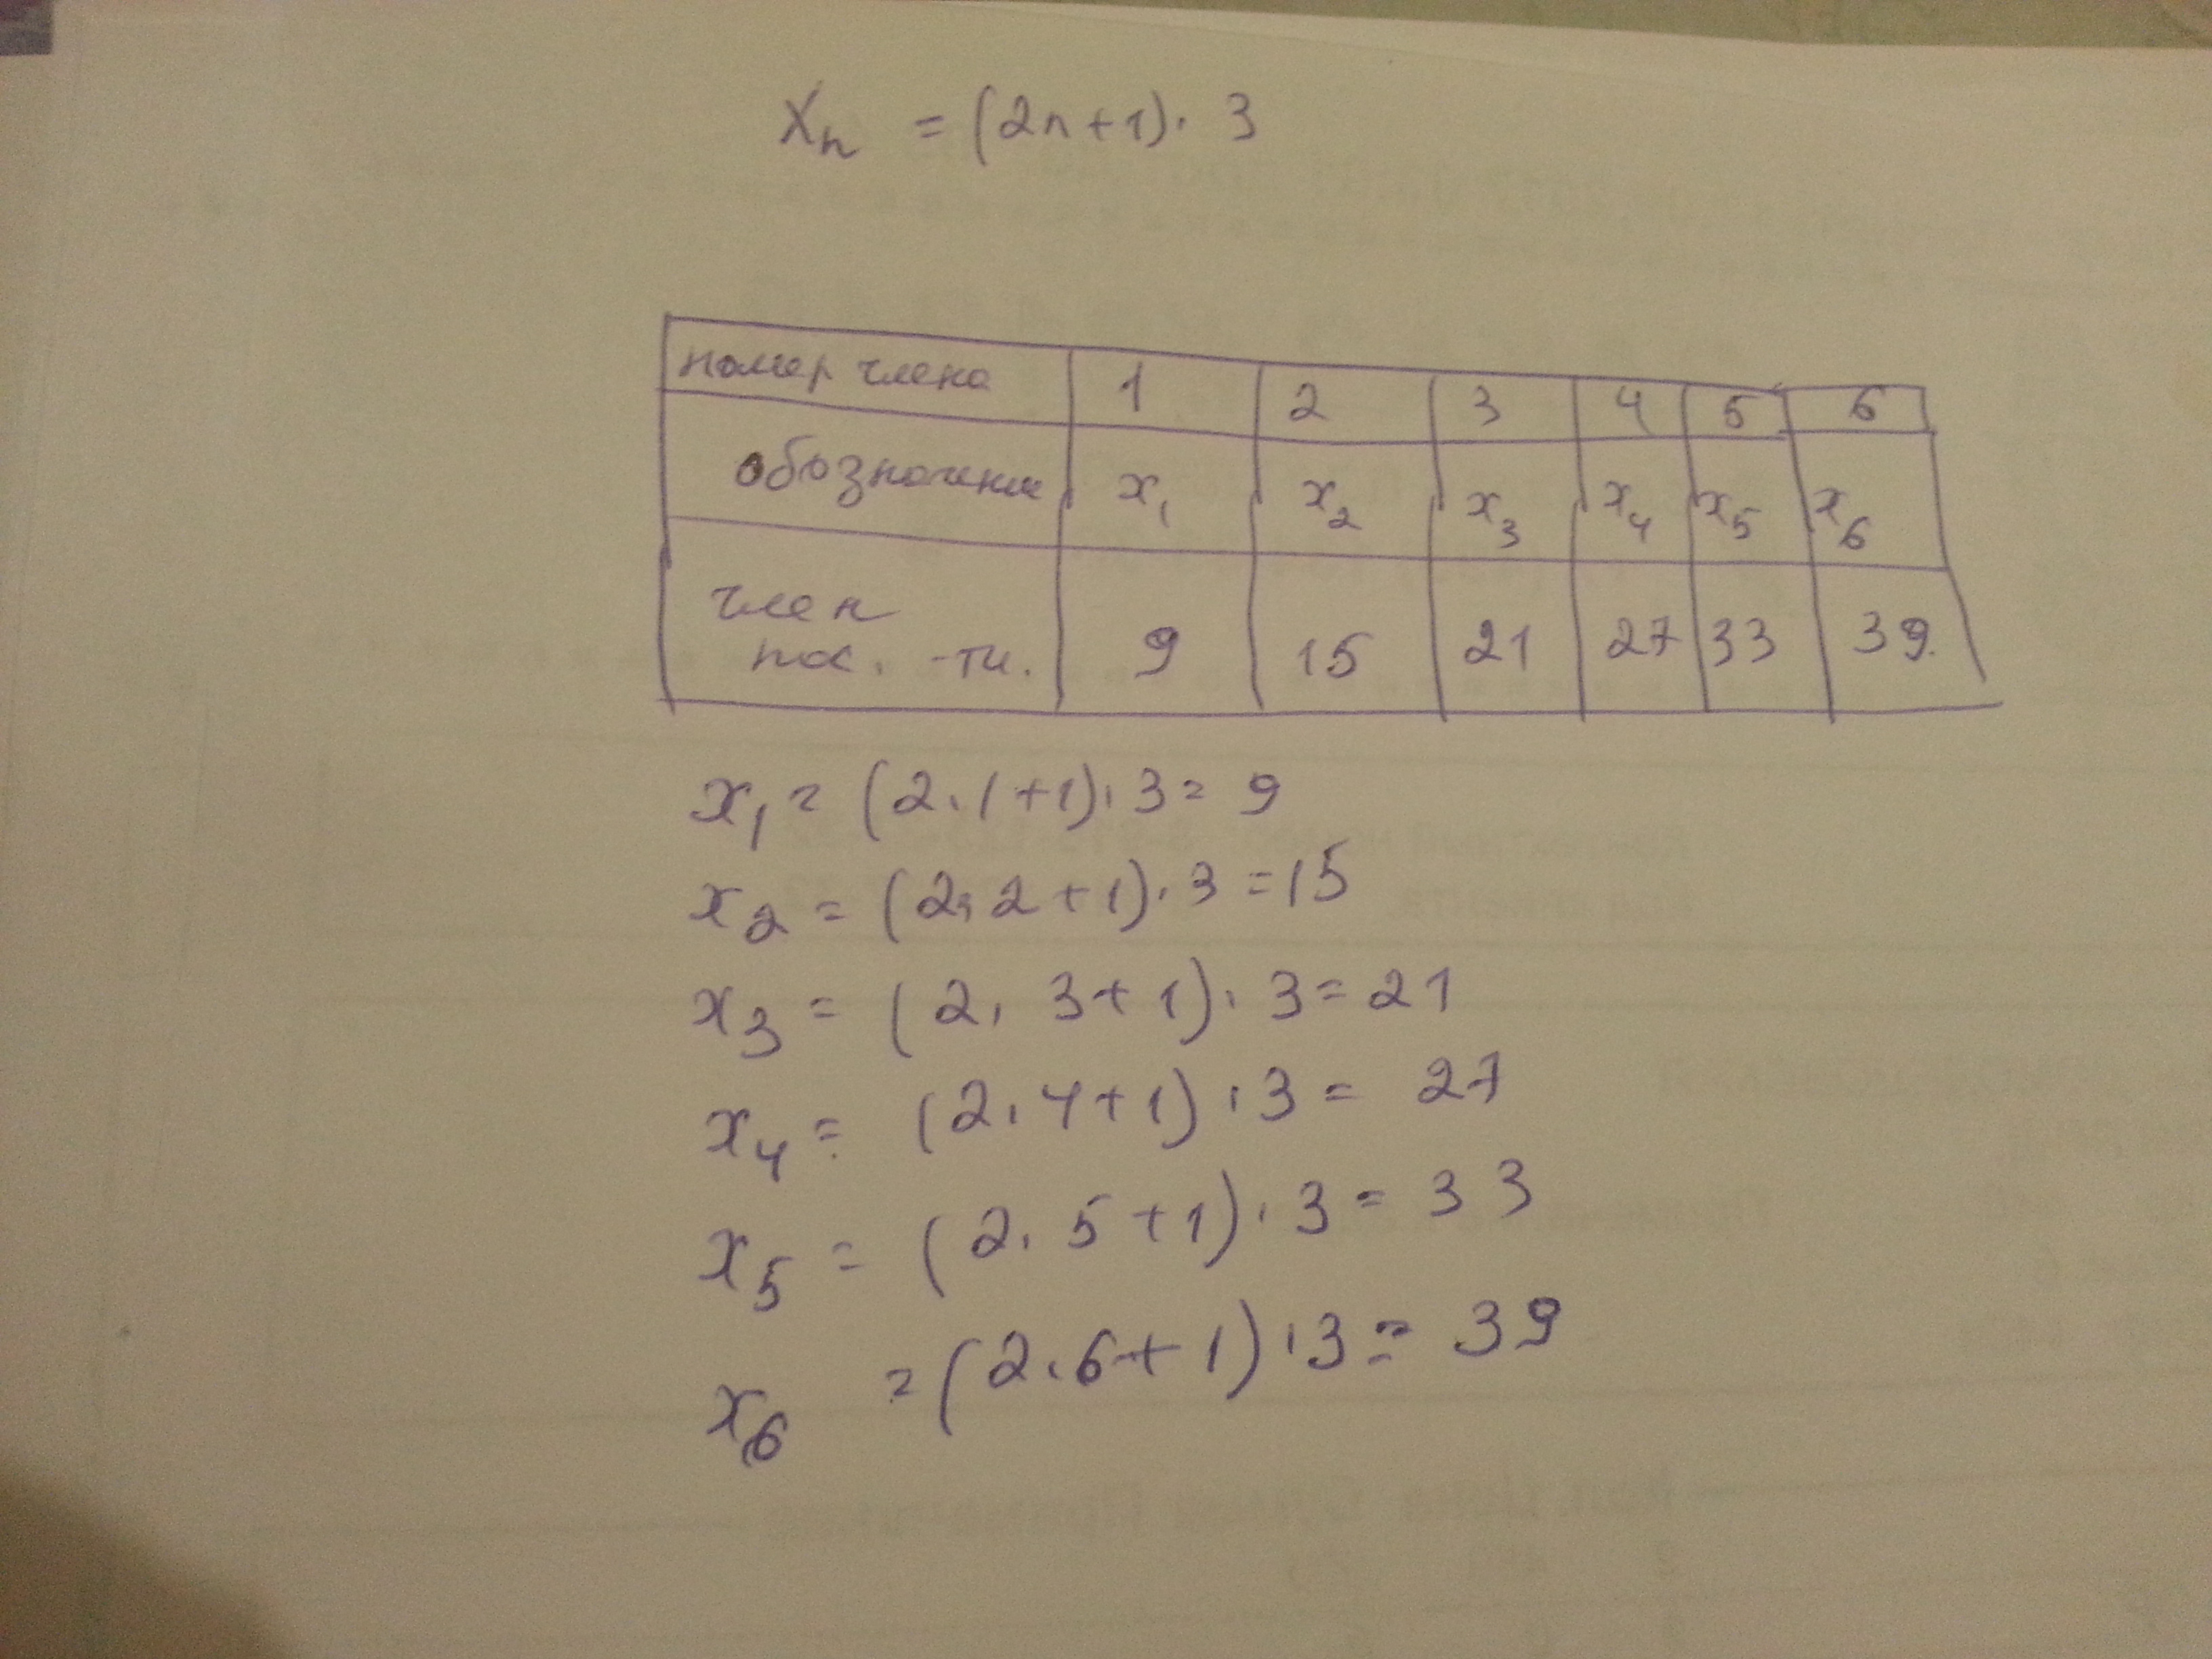 Xn = (2n+1)· 3
номер члена 1 2 3 4 5 6
обозначение x₁ x₂ x₃ x₄ x₅ x₆
член
пос. -ти. 9 15 21 27 33 39.
x₁ = (2·1+1)·3= 9
x₂ = (2·2+1)·3 =15
x₃ = (2· 3+1)· 3=21
x₄ = (2·4+1)·3= 27
x₅ = (2· 5+1)·3= 33
x₆ =(2·6+1)·3= 39